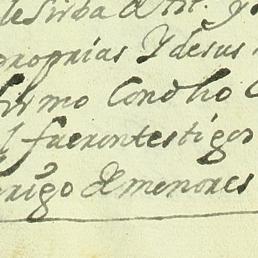 le sirba
proprias Y desus
firmo Condho
fuerontestigos
rigo de menores